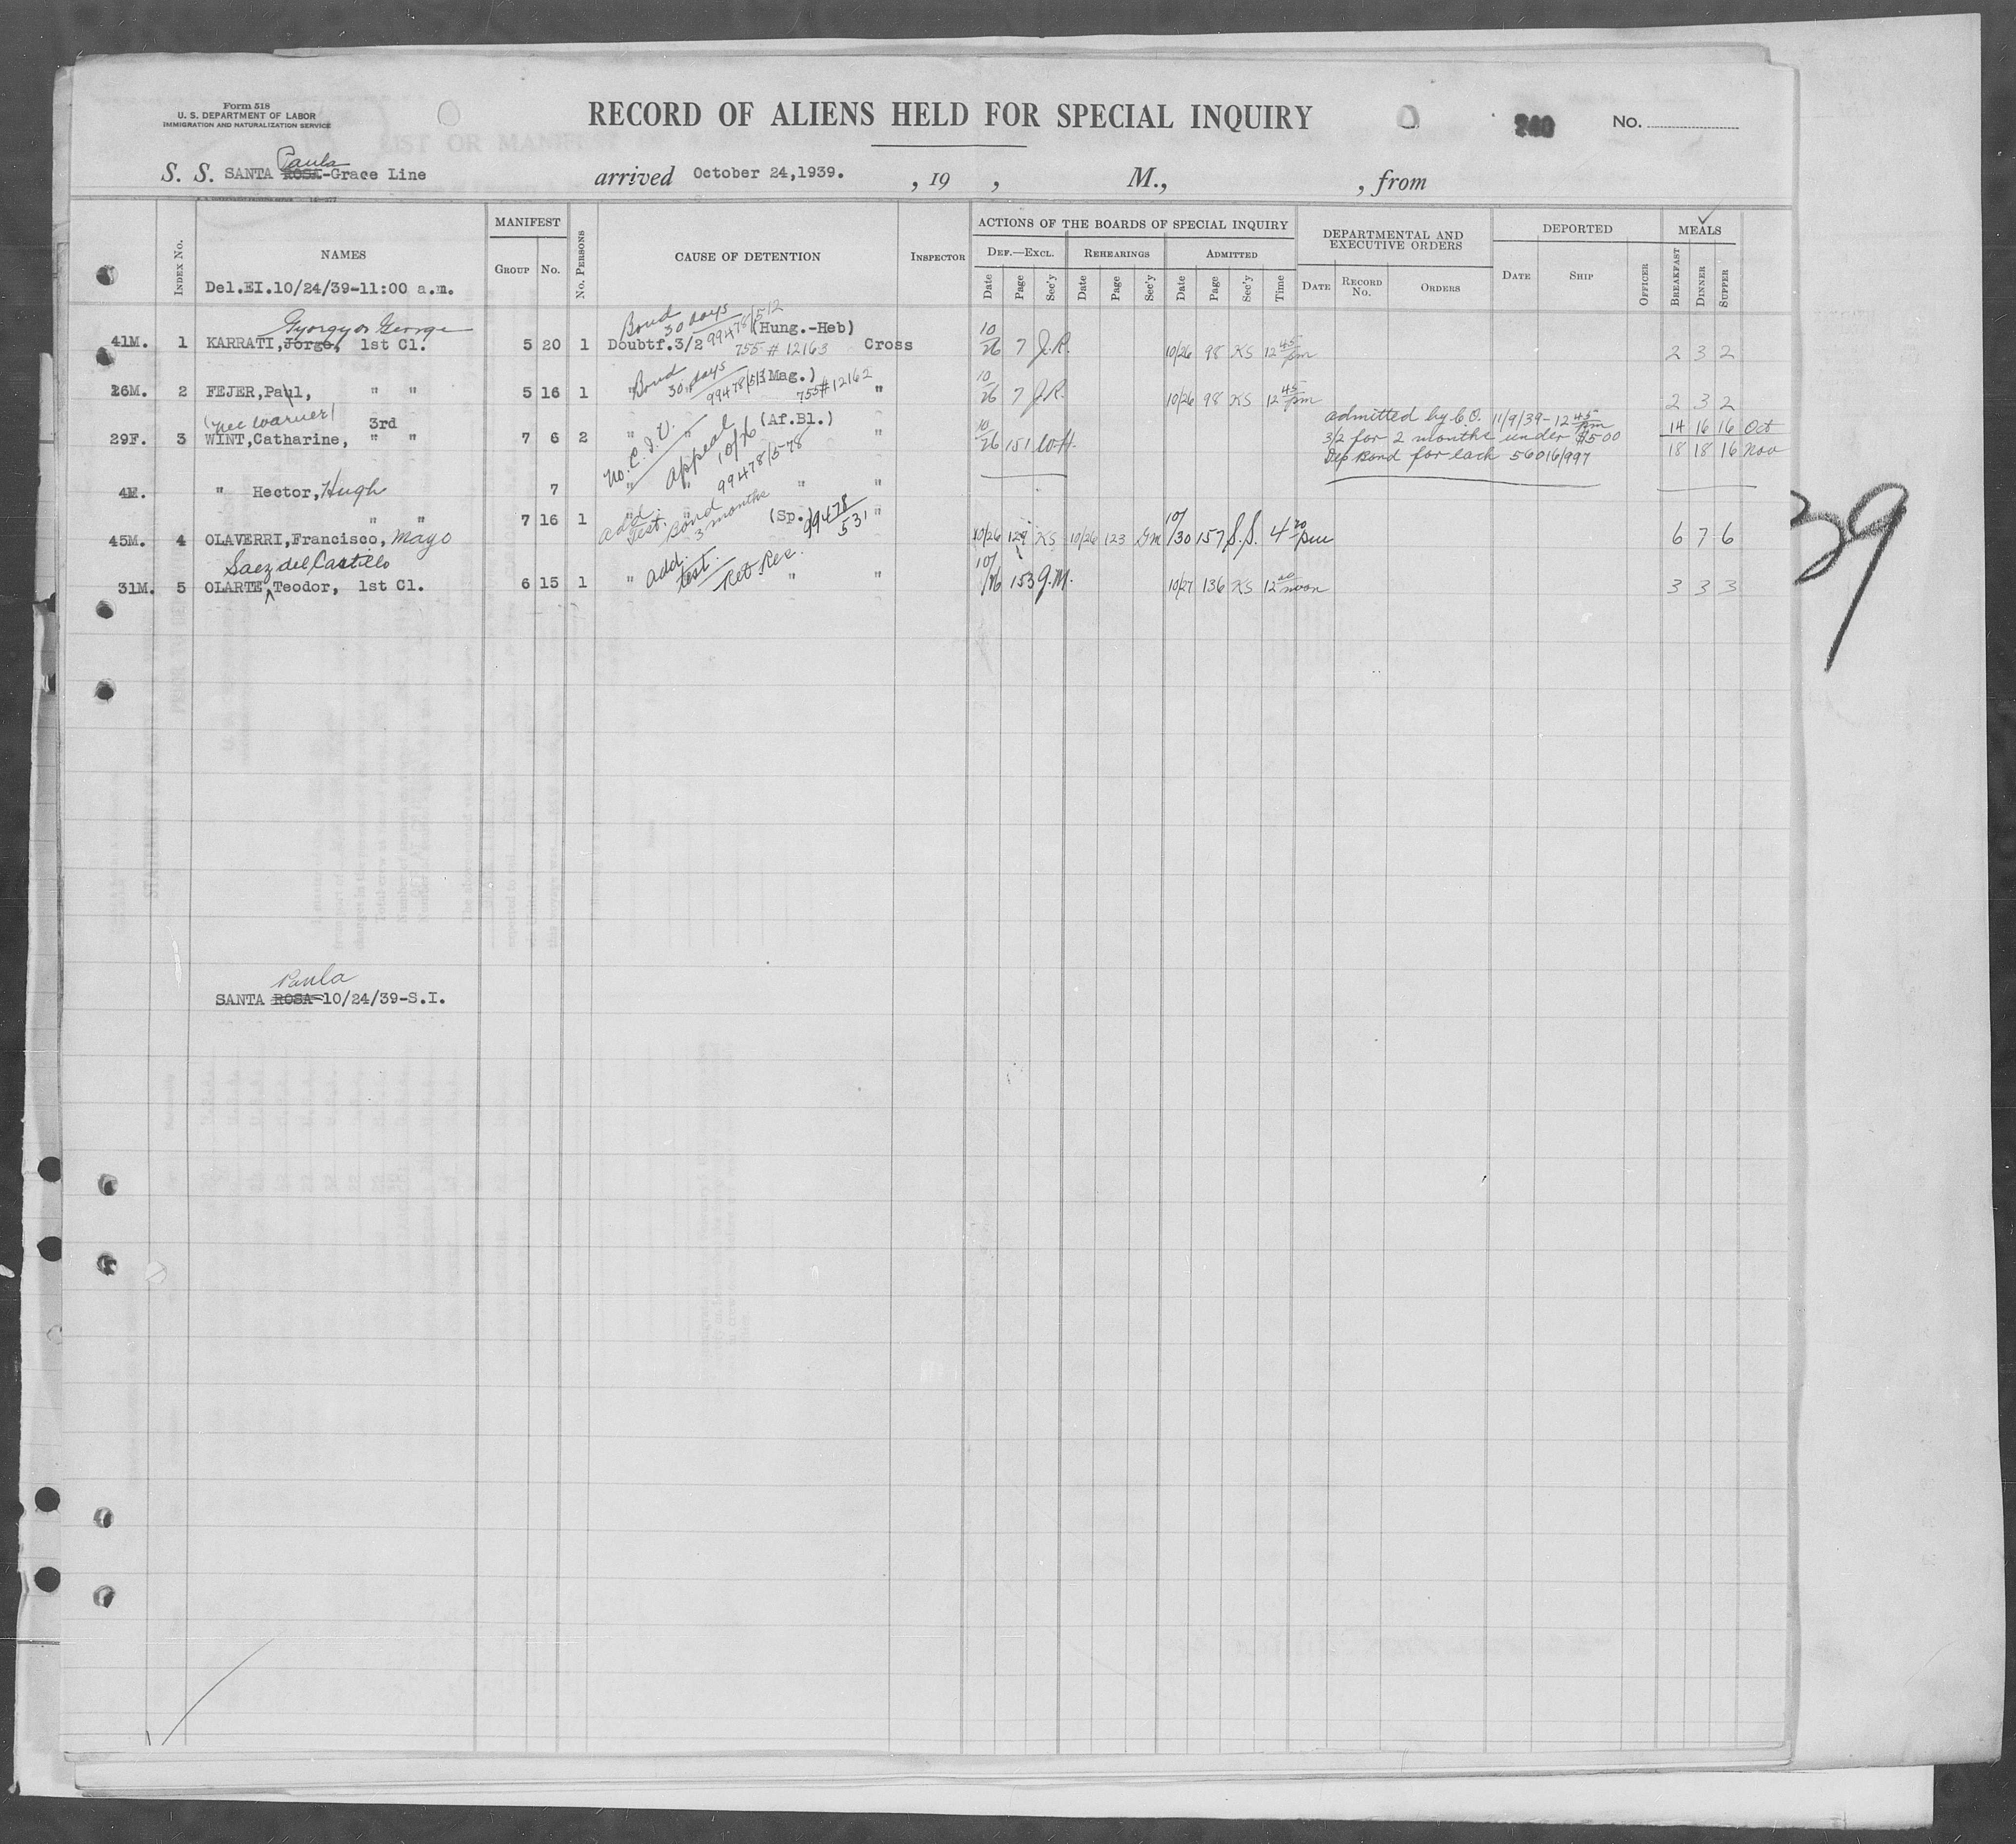 Form 518
U. S. DEPARTMENT OF LABOR
IMMIGRATION AND NATURALIZATION SERVICE
RECORD OF ALIENS HELD FOR SPECIAL INQUIRY
240
No.
Paula
S. S. SANTA ROSA-Grace Line arrived October 24,1939. , 19 , M., , from
INDEX No. NAMES MANIFEST GROUP No. No. PERSONS CAUSE OF DETENTION INSPECTOR ACTIONS OF THE BOARDS OF SPECIAL INQUIRY DEPARTMENTAL AND EXECUTIVE ORDERS DEPORTED MEALS
DEF.—EXCL. REHEARINGS ADMITTED
Date Page Sec'y Date Page Sec'y Date Page Sec'y Time DATE RECORD No. ORDERS DATE SHIP OFFICER BREAKFAST DINNER SUPPER
Del.EI.10/24/39-11:00 a.m.
Gyorgy or George Bond 30 days 99478/512 (Hung.-Heb)
41M. 1 KARRATI,Jorge, 1st Cl. 5 20 1 Doubtf.3/2 755 # 12163 Cross 10/26 7 J.R. 10/26 98 KS 12 45 pm 2 3 2
Bond 30 days 99478/513 (Mag.) 755# 12162
26M. 2 FEJER,Paul, " " 5 16 1 " " " 10/26 7 J.R. 10/26 98 KS 12 45 pm 2 3 2
(nee Warner) 3rd No. C. I. V. Appeal 10/26 99478/578 (Af.Bl.)
29F. 3 WINT,Catharine, " " 7 6 2 " " " 10/26 151 W.H. admitted by C.O. 11/9/39-12 45 pm 14 16 16 Oct
3/2 for 2 months under $500
Dep Bond for each 56016/997 18 18 16 Nov
4M. " Hector, Hugh 7 " " " "
" " add. test. Bond 3 months (Sp.) 99478/531
45M. 4 OLAVERRI,Francisco, Mayo 7 16 1 " " " 10/26 129 KS 10/26 123 GM 10/30 157 S.S. 4 20 pm 6 7 6
Saez del Castillo add. test. Ret. Rec.
31M. 5 OLARTE,Teodor, 1st Cl. 6 15 1 " " " 10/26 153 J.M. 10/27 136 KS 12 00 noon 3 3 3
39
Paula
SANTA ROSA-10/24/39-S.I.